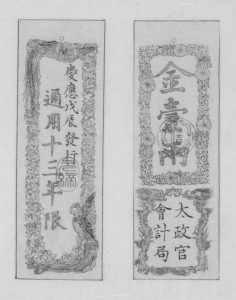 慶應戊辰發行
通用十三年限
金壹兩
太政官
會計局